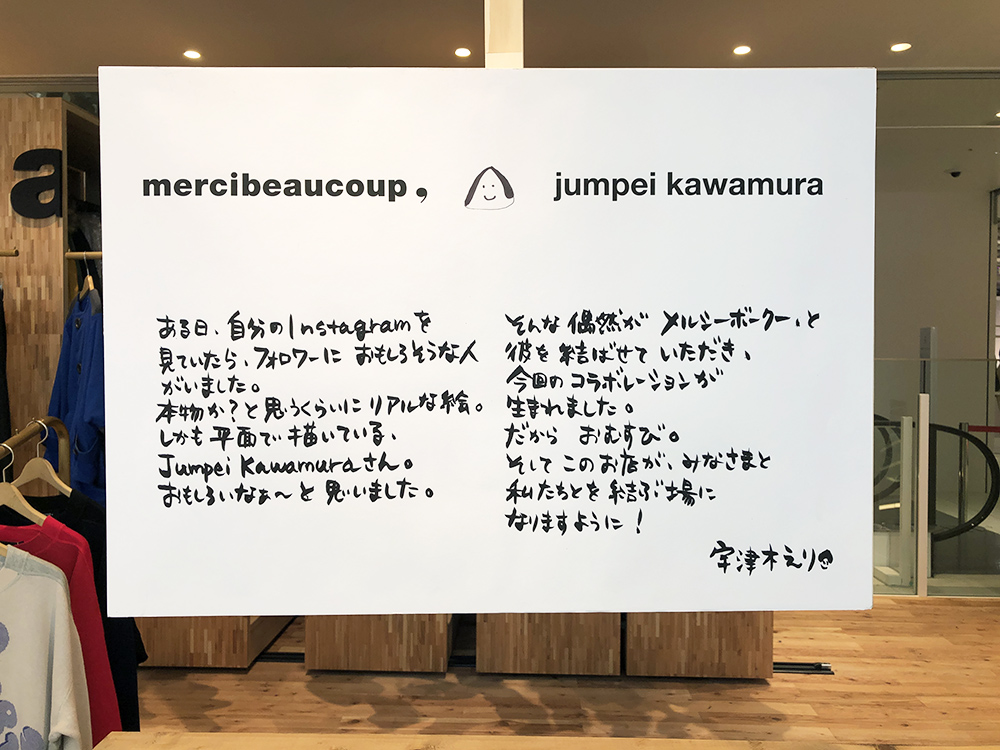 a
mercibeaucoup,
jumpei kawamura
ある日、自分のInstagramを
見ていたら、フォロワーに おもしろそうな人
がいました。
本物か?と思うくらいにリアルな絵。
しかも平面で描いている、
Jumpei Kawamuraさん。
おもしろいなぁ〜と思いました。
そんな偶然が メルシーボークー、と
彼を結ばせていただき、
今回のコラボレーションが
生まれました。
だから おむすび。
そしてこのお店が、みなさまと
私たちとを結ぶ場に
なりますように!
宇津木えり